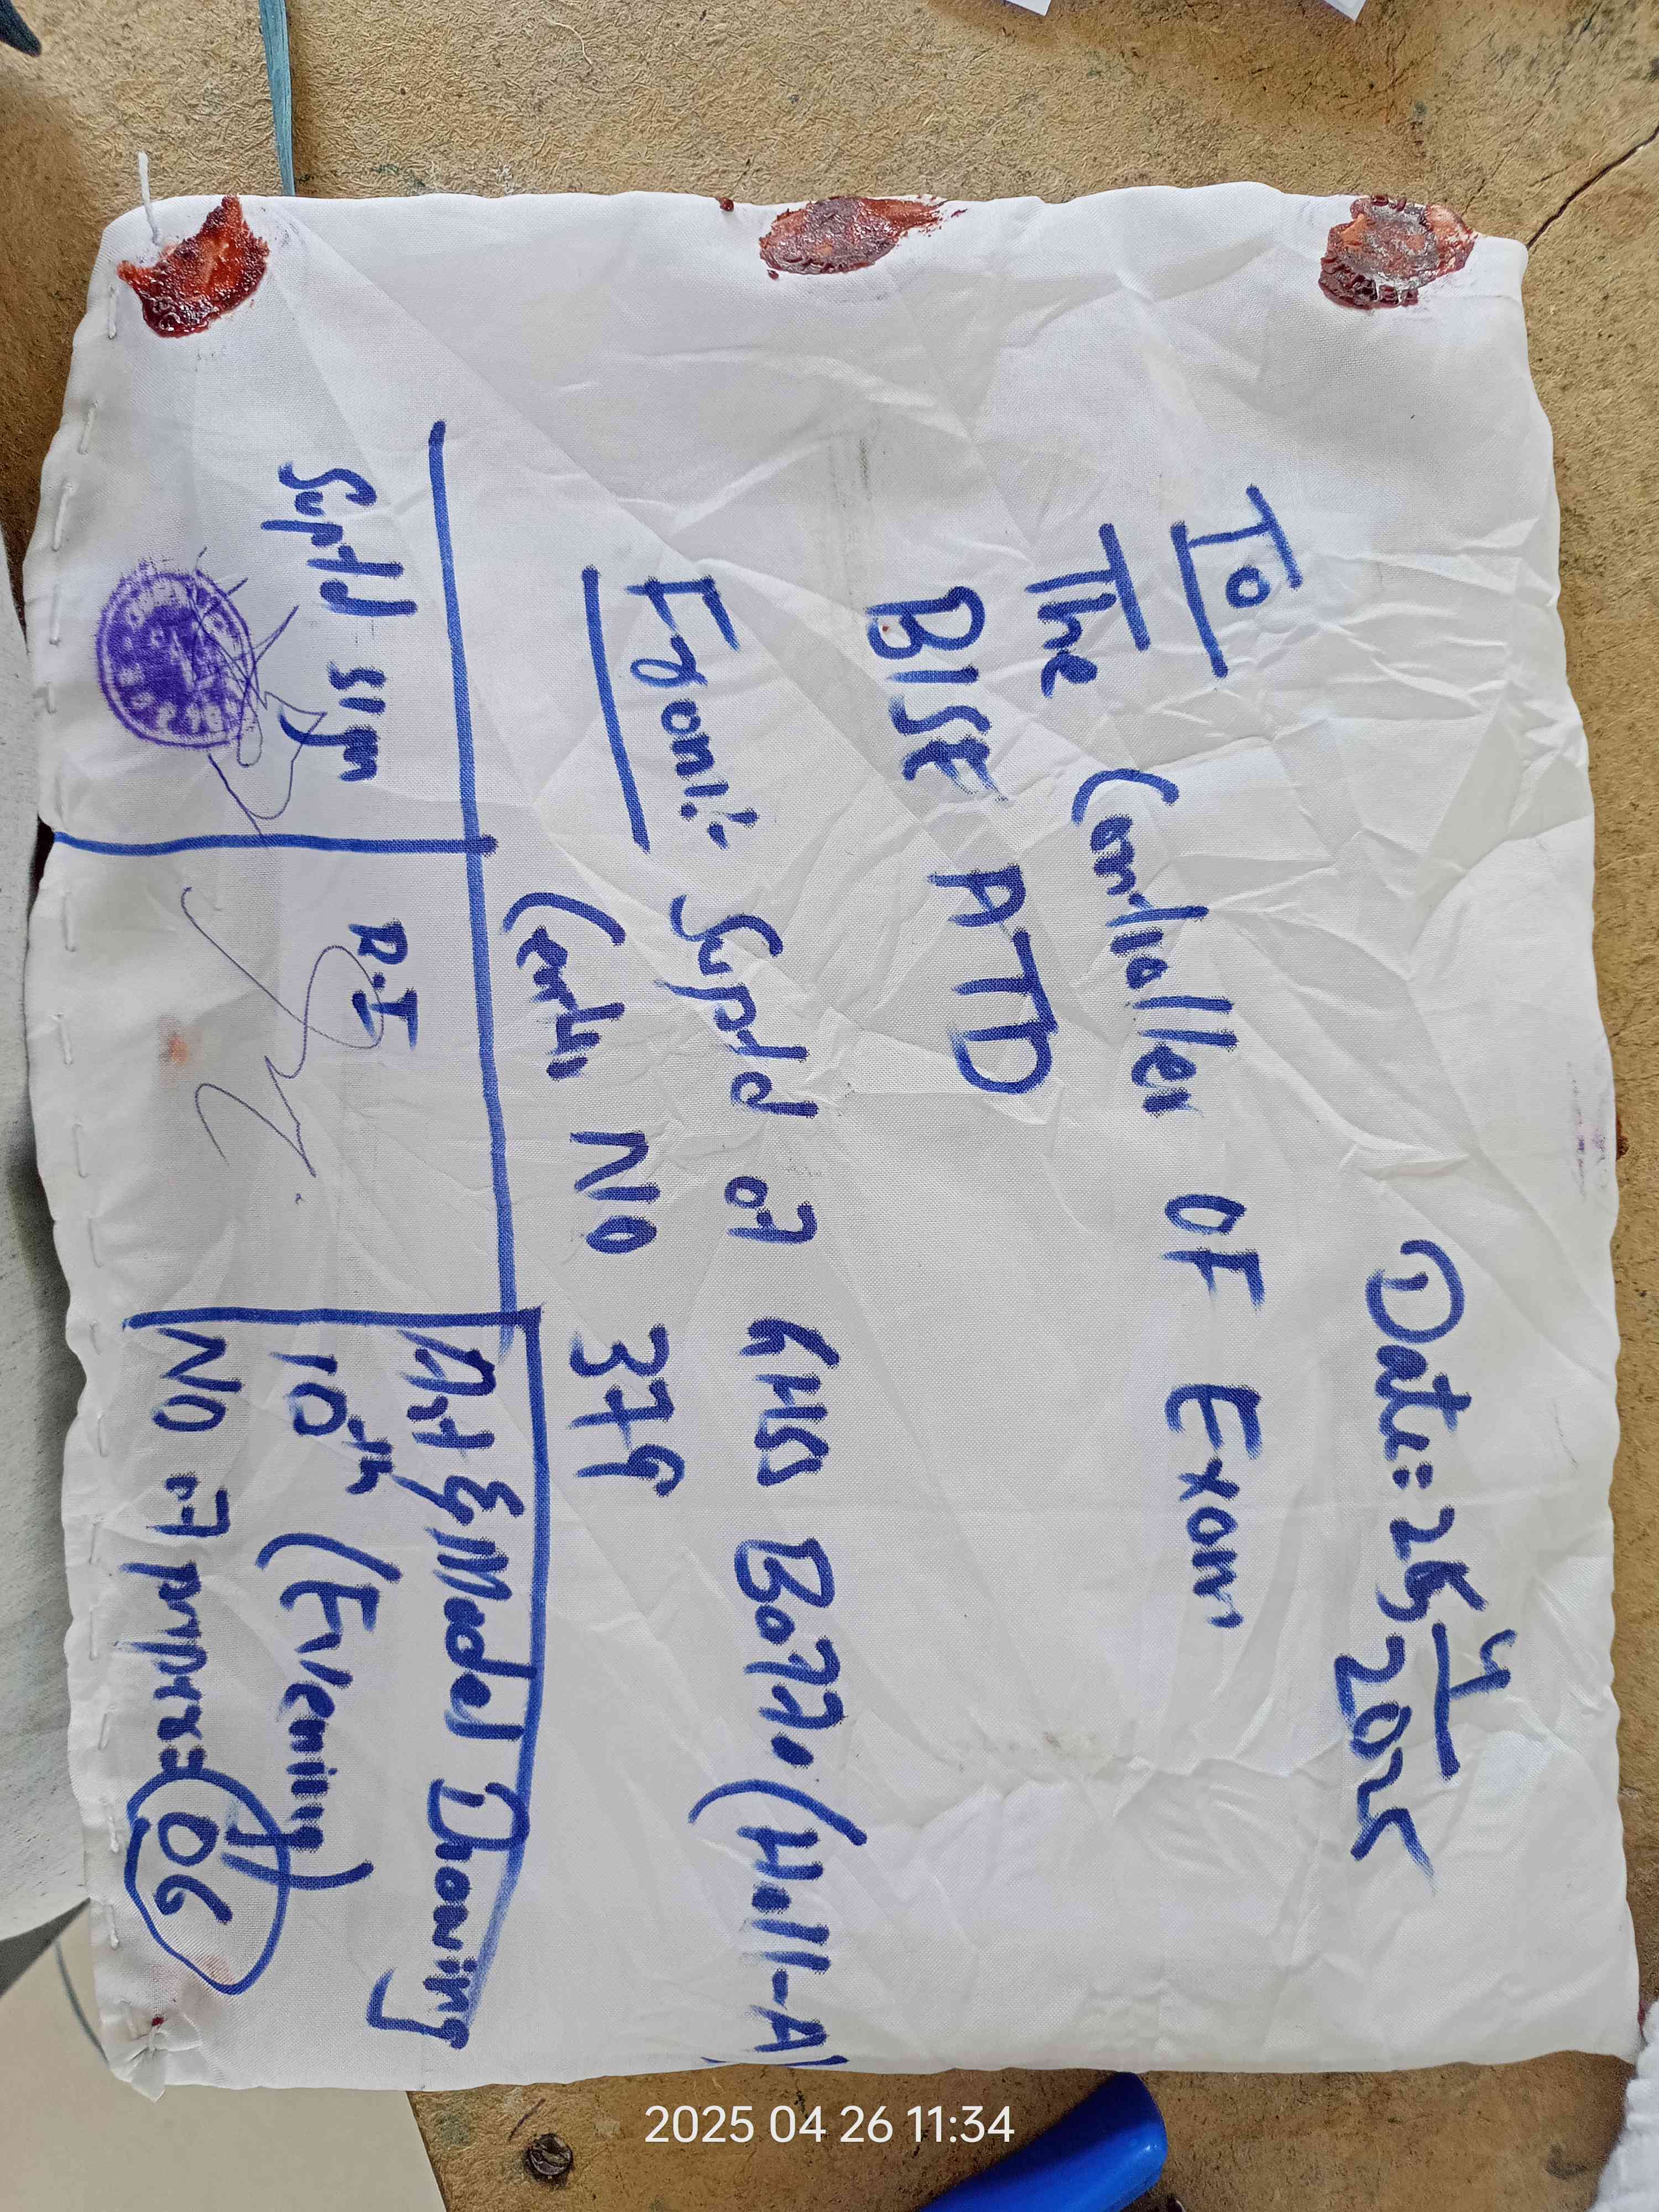 Date: 25 4
2025
To
The Controller OF Exam
BISE ATD
From:- Suptd of GHS Boyya (Hall-A)
Centre NO 379
Suptd sign
R.I
Art & Model Drawing
10th (Evening)
NO of papers= 06
2025 04 26 11:34